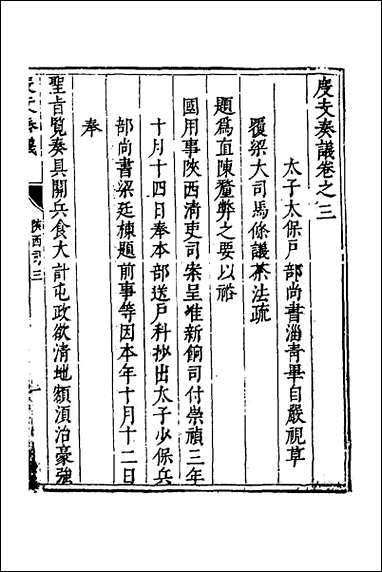 度支奏議卷之三
太子太保戶部尚書淄青畢自嚴視草
覆梁大司馬條議茶法疏
題為直陳釐弊之要以裕
國用事陝西清吏司案呈准新餉司付崇禎三年
十月十四日奉本部送戶科抄出太子少保兵
部尚書梁廷棟題前事等因本年十月十二日
奉
聖旨覽奏具關兵食大計屯政欲清地額須治豪強
度支奏議
陝西司三